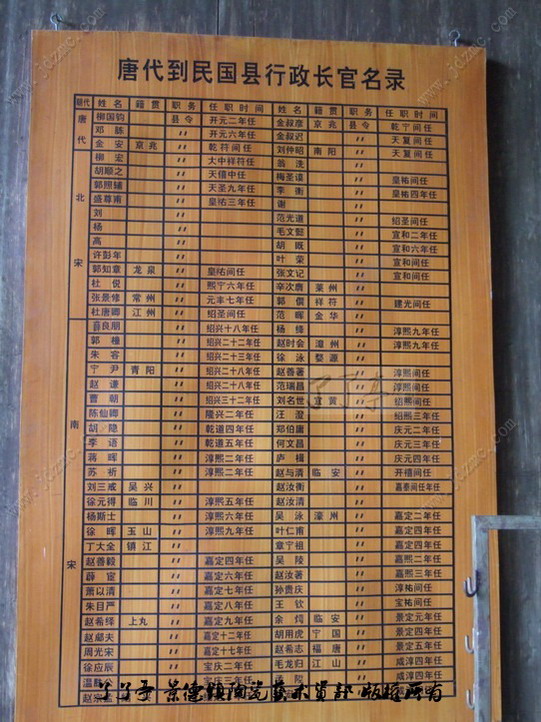 唐代到民国县行政长官名录
朝代 姓名 籍贯 职务 任职时间 姓名 籍贯 职务 任职时间
唐代 柳国钧 县令 开元二年任 金叔彦 京兆 县令 乾宁间任
邓 〃 开元六年任 金叔迟 〃 天复间任
金安 京兆 〃 乾符间任 刘仲昭 南阳 〃 天复间任
北宋 柳宏 〃 大中祥符任 翁洗 〃
胡顺之 〃 天禧中任 梅圣读 〃 皇祐间任
郭照辅 〃 天圣九年任 李衡 〃 皇祐四年任
盛尊甫 〃 皇祐三年任 谢 〃
刘 〃 范光道 〃 绍圣间任
杨 〃 毛文懿 〃 宣和二年任
高 〃 胡 〃 宣和六年任
许彭年 〃 叶荣 〃 宣和间任
郭知章 龙泉 〃 皇祐间任 张文记 〃 宣和间任
杜倪 〃 熙宁六年任 辛次膺 莱州 〃
张景修 常州 〃 元丰七年任 郭僎 祥符 〃 建光间任
杜唐卿 江州 〃 绍圣间任 范晖 金华 〃
南宋 良朋 〃 绍兴十八年任 杨绛 〃 淳熙九年任
郭橦 〃 绍兴二十二年任 赵时会 漳州 〃 淳熙九年任
朱容 〃 绍兴二十三年任 徐泳 婺源 〃
宁尹 青阳 〃 绍兴二十八年任 赵善著 〃 淳熙间任
赵谦 〃 绍兴二十八年任 范瑞昌 〃 淳熙间任
曹朝 〃 绍兴三十二年任 刘名世 宜黄 〃 绍熙间任
陈仙卿 〃 隆兴二年任 汪澄 〃 绍熙三年任
胡隐 〃 乾道四年任 郑伯庸 〃 庆元二年任
李语 〃 乾道五年任 何文昌 〃 庆元三年任
蒋晖 〃 淳熙二年任 庐 〃 庆元四年任
苏祈 〃 淳熙二年任 赵与清 临安 〃 开禧间任
刘三戒 吴兴 〃 赵汝衡 〃 嘉泰间任年任
徐元得 临川 〃 淳熙五年任 赵汝清 〃
杨斯士 〃 淳熙六年任 吴泳 濠州 〃 嘉定二年任
徐晖 玉山 〃 淳熙九年任 叶仁甫 〃 嘉定四年任
丁大全 镇江 〃 章宁祖 〃 嘉定间任
赵善毅 〃 嘉定四年任 吴陵 〃 嘉熙二年任
薛宦 〃 嘉定六年任 赵汝著 〃 嘉熙三年任
萧以清 〃 嘉定七年任 孙贵庆 〃 淳祐间任
朱目严 〃 嘉定八年任 王钦 〃 宝祐间任
赵希绎 上丸 〃 嘉定九年任 余炖 临安 〃 景定元年任
赵郕夫 〃 嘉定十二年任 胡用虎 宁国 〃 景定四年任
周光宋 〃 嘉定十七年任 赵希志 福唐 〃 景定五年任
徐应辰 〃 宝庆二年任 毛龙归 江山 〃 咸淳四年任
公 〃 宝庆三年任 陵 〃 咸淳四年任
赵宗
了了亭 景德镇陶瓷艺术资部 版权所有
www.jdzmc.com